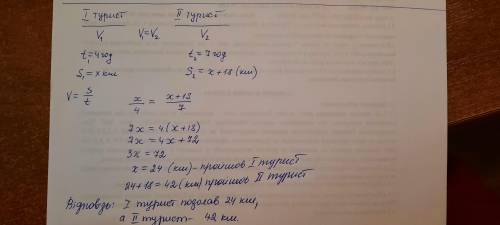 I турист II турист
V₁ V₁=V₂ V₂
t₁=4год t₂=7год
S₁=x км S₂=x+18(км)
V=S/t x/4 = x+18/7
7x=4(x+18)
7x=4x+72
3x=72
x=24 (км)- пройшов I турист
24+18=42(км) пройшов II турист
Відповідь: I турист подолав 24 км,
а II турист- 42 км.